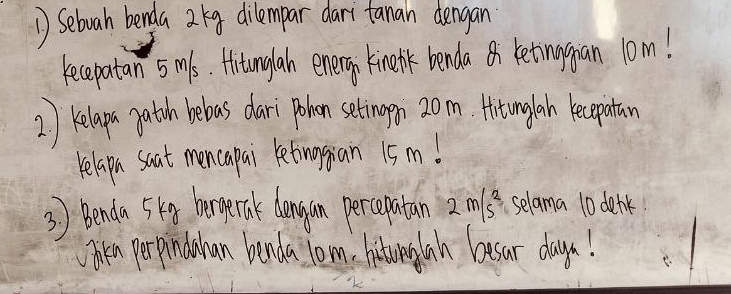 1) Sebuah benda 2 kg dilempar dari tanah dengan
kecepatan 5 m/s. Hitunglah energi kinetik benda di ketinggian 10 m!
2.) Kelapa jatuh bebas dari pohon setinggi 20 m. Hitunglah kecepatan
kelapa saat mencapai ketinggian 15 m!
3.) Benda 5 kg bergerak dengan percepatan 2 m/s² selama 10 detik.
Jika perpindahan benda 10m. hitunglah besar daya!